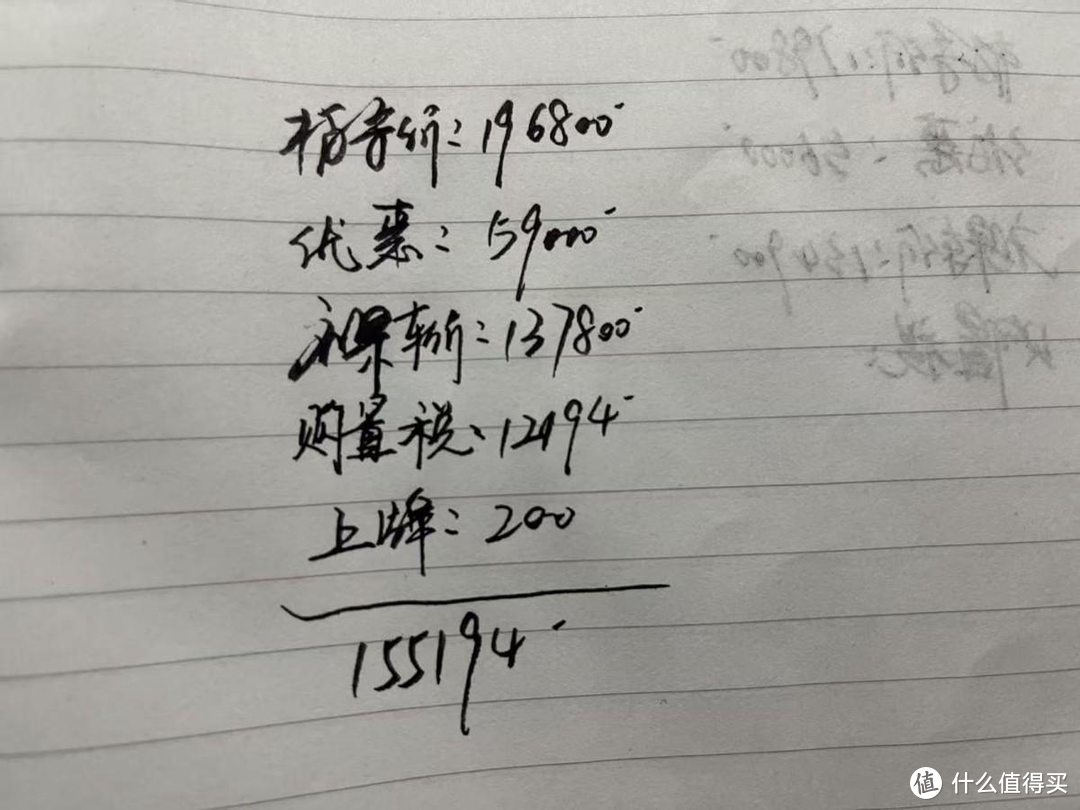 指导价：196800
优惠：59000
裸车价：137800
购置税：12194
上牌：200
155194
值 什么值得买